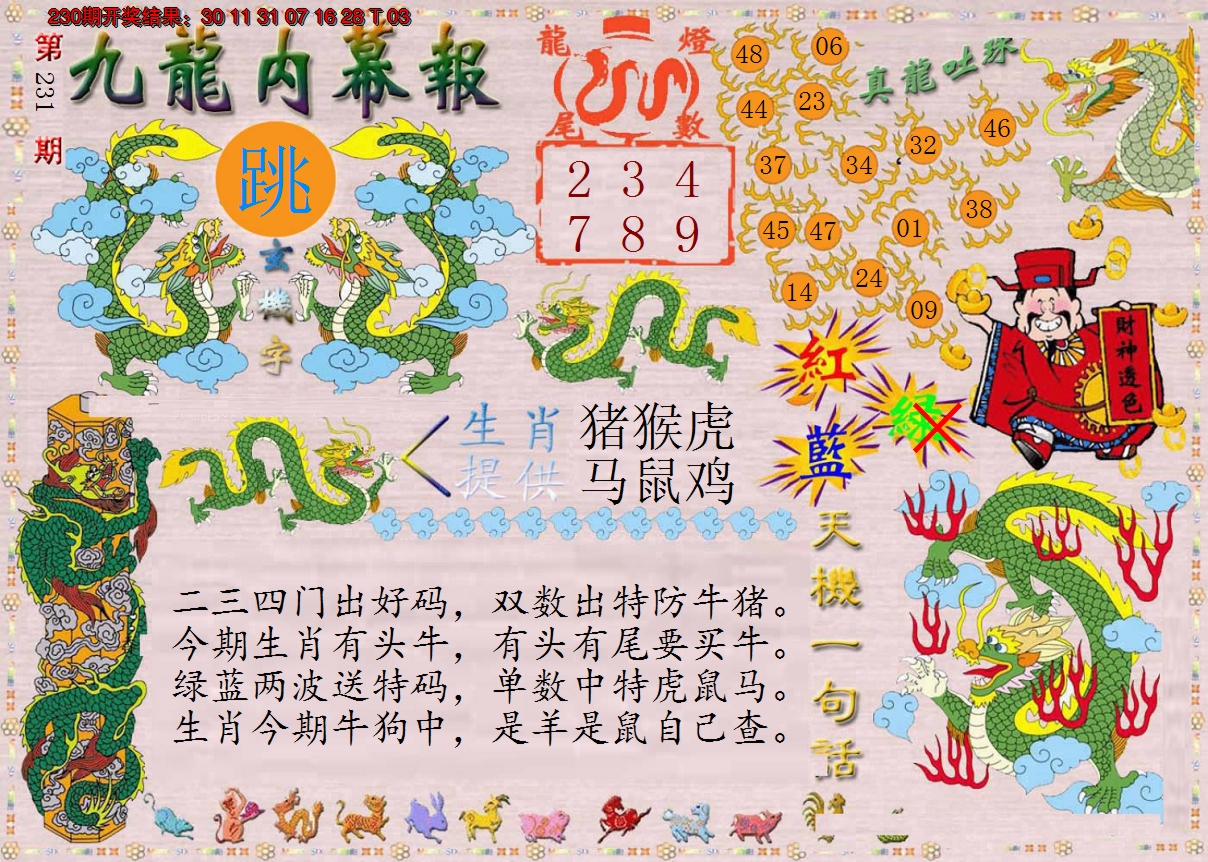 230期开奖结果：30 11 31 07 16 28 T 03
第231期
九龍内幕報
跳
玄機字
龍燈尾數
2 3 4
7 8 9
真龍吐珠
48 06
44 23
37 34 32 46
45 47 01 38
14 24 09
紅
綠
藍
財神透色
生肖提供
猪猴虎
马鼠鸡
天機一句话
二三四门出好码，双数出特防牛猪。
今期生肖有头牛，有头有尾要买牛。
绿蓝两波送特码，单数中特虎鼠马。
生肖今期牛狗中，是羊是鼠自己查。